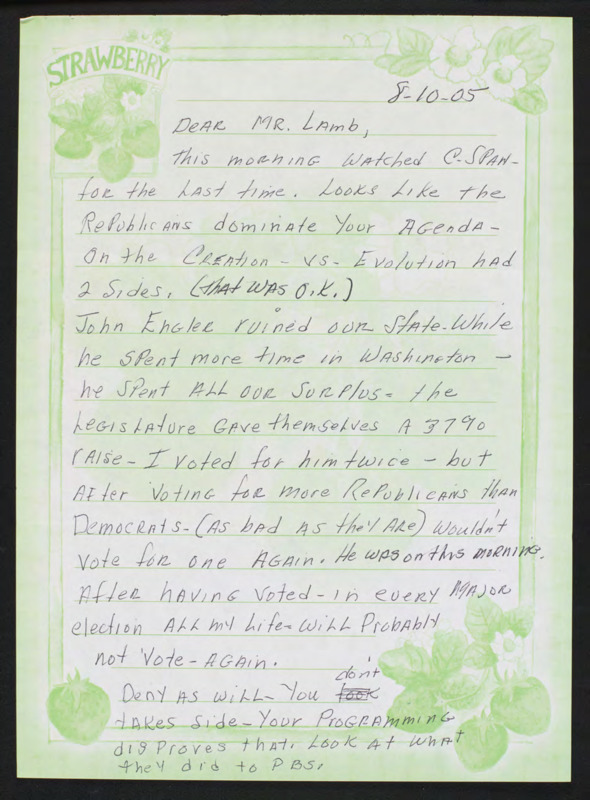 STRAWBERRY
8-10-05
Dear Mr. Lamb,
This morning watched C-SPAN-
for the last time. Looks like the
Republicans dominate your agenda-
On the Creation - vs - Evolution had
2 sides. (that was O.K.)
John Engler ruined our state-While
he spent more time in Washington -
he spent all our surplus - the
Legislature gave themselves a 37%
raise - I voted for him twice - but
After voting for more Republicans than
Democrats - (as bad as they are) wouldn't
vote for one again. He was on this morning.
After having voted - in every major
election all my life - will probably
not vote - again.
don't
Deny as will - you took
takes side - your programming
disproves that. Look at what
they did to PBS.